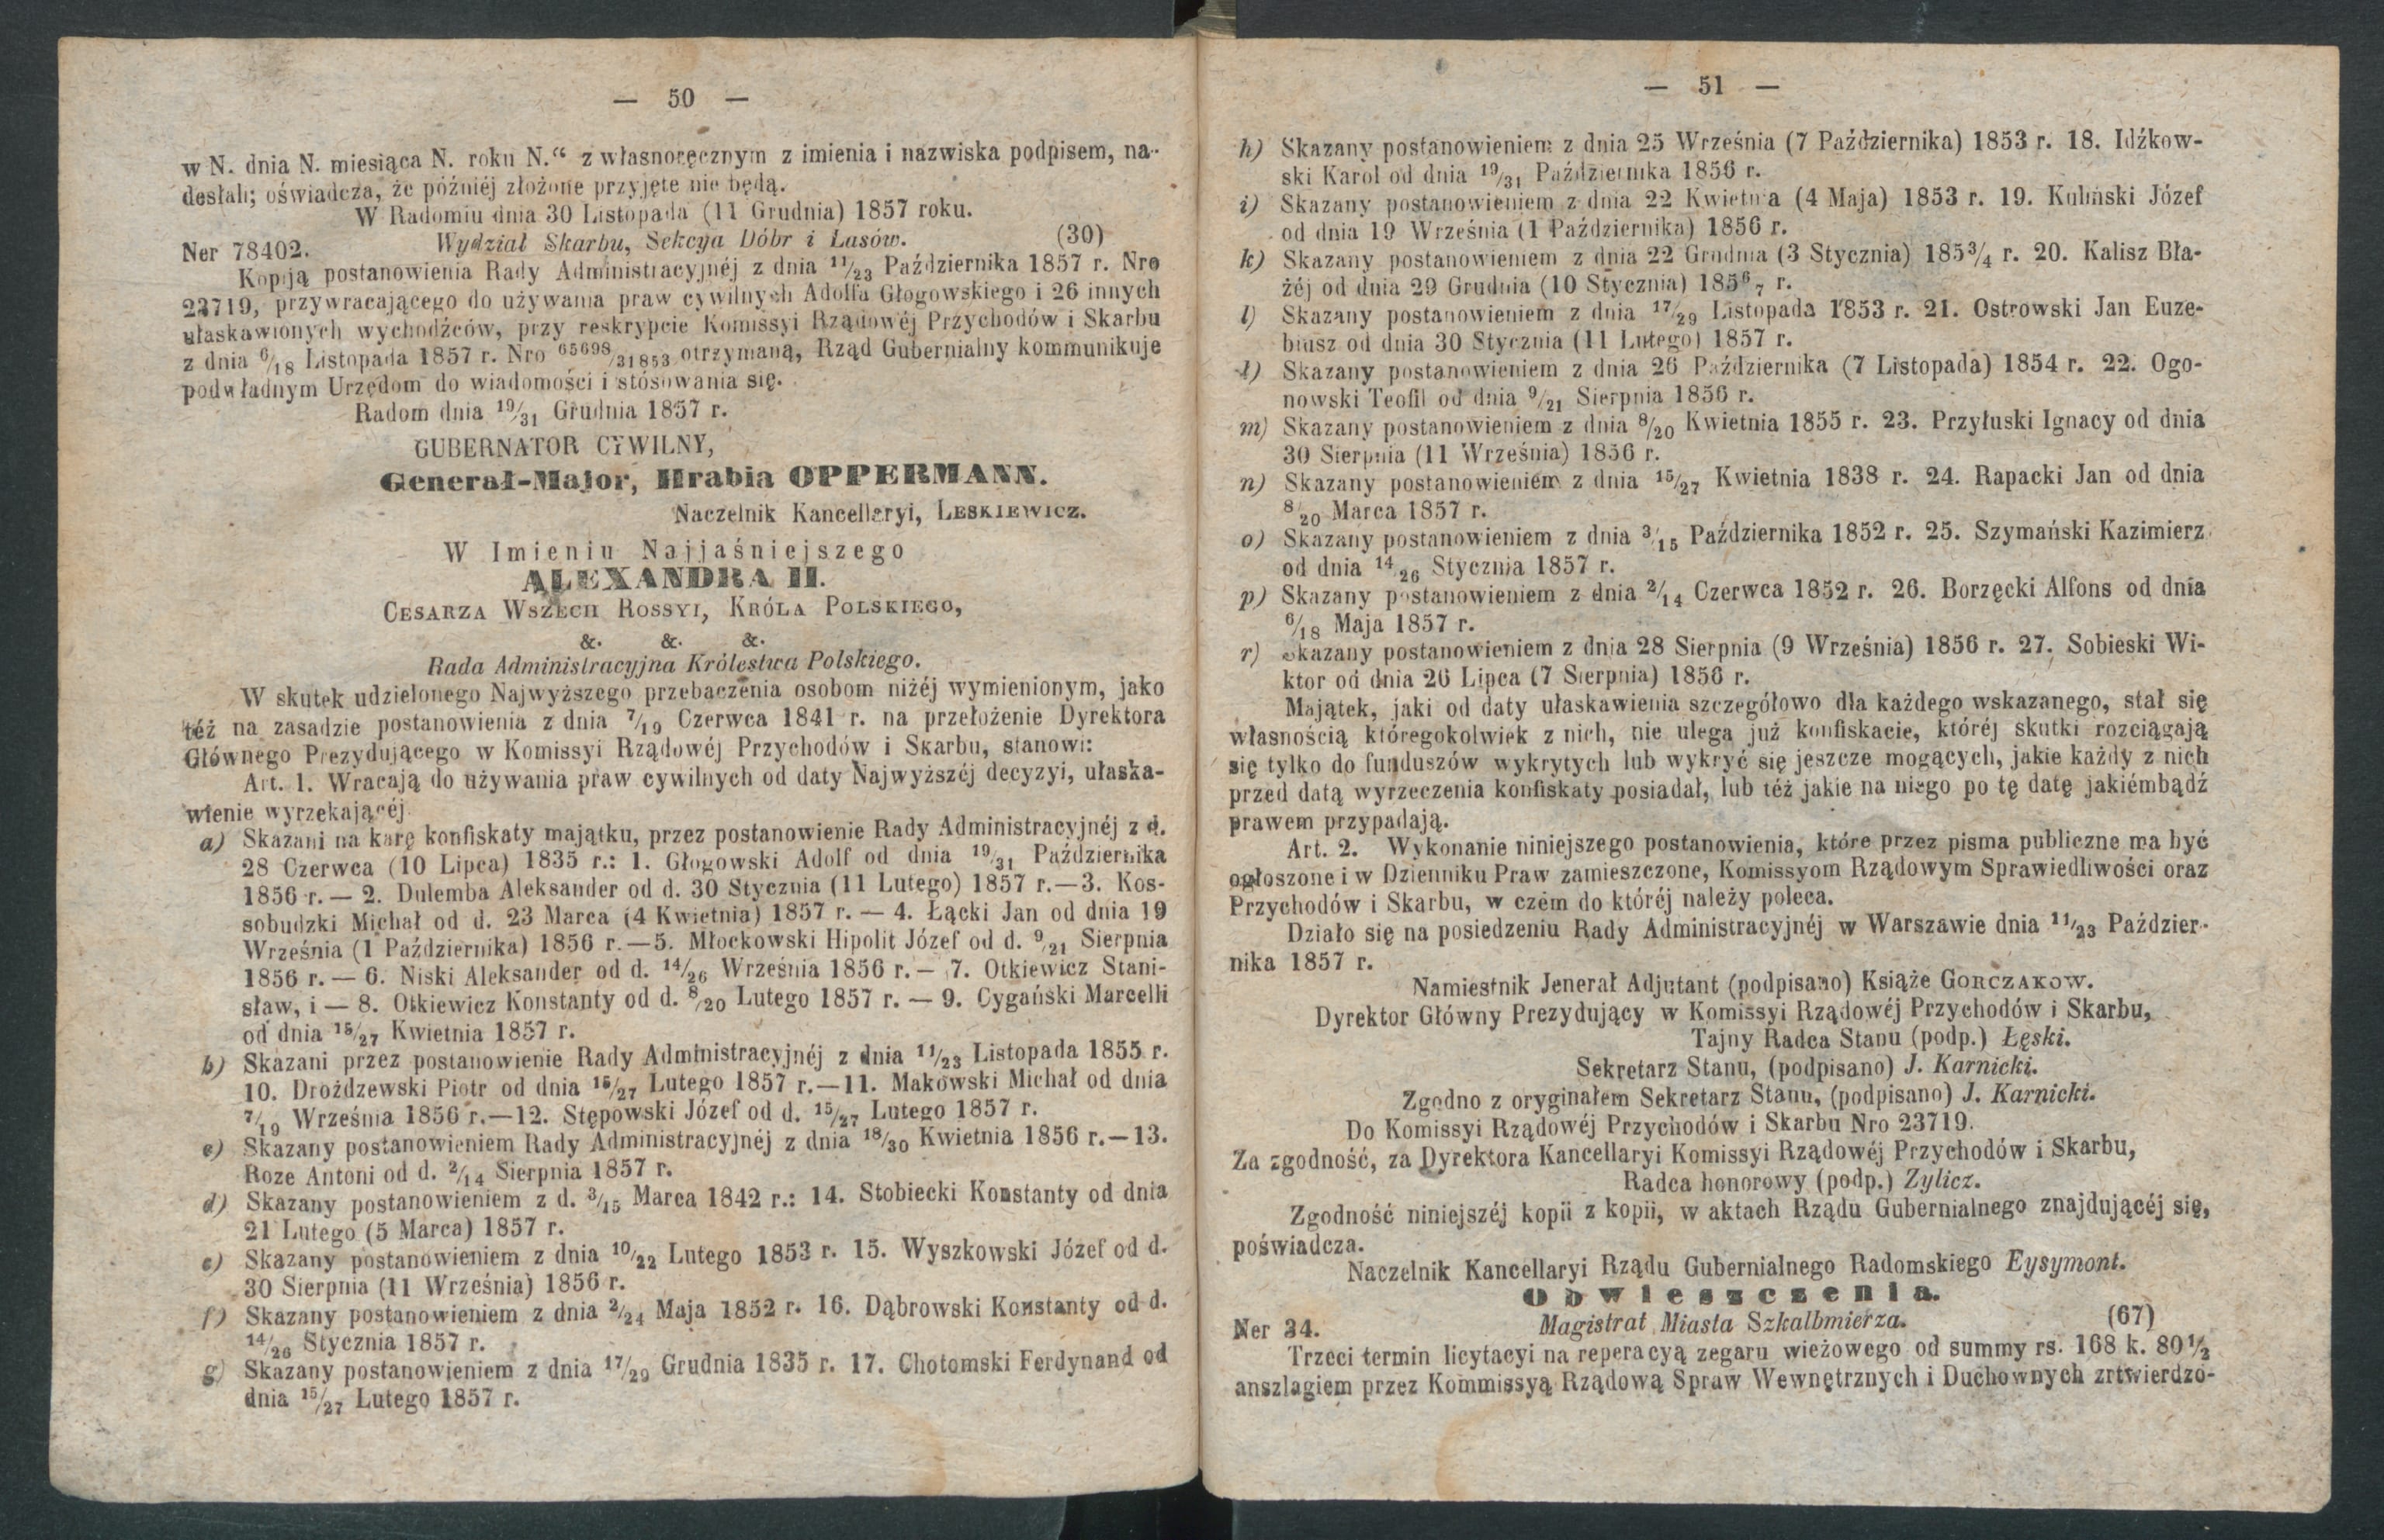 — 50 —
w N. dnia N. miesiąca N. roku N.“ z własnoręcznym z imienia i nazwiska podpisem, na-
desłali; oświadcza, że późniéj złożone przyjęte nie będą.
W Radomiu dnia 30 Listopada (11 Grudnia) 1857 roku.
Ner 78402. Wydział Skarbu, Sekcya Dóbr i Lasów. (30)
Kopiją postanowienia Rady Administracyjnéj z dnia 11/23 Października 1857 r. Nro
23719, przywracającego do używania praw cywilnych Adolfa Głogowskiego i 26 innych
ułaskawionych wychodźców, przy reskrypcie Komissyi Rządowéj Przychodów i Skarbu
z dnia 6/18 Listopada 1857 r. Nro 65698/31853 otrzymaną, Rząd Gubernialny kommunikuje
podwładnym Urzędom do wiadomości i stósowania się.
Radom dnia 19/31 Grudnia 1857 r.
GUBERNATOR CYWILNY,
Generał-Major, Hrabia OPPERMANN.
Naczelnik Kancellaryi, LESKIEWICZ.
W Imieniu Najjaśniejszego
ALEXANDRA II.
CESARZA WSZECH ROSSYI, KRÓLA POLSKIEGO,
&. &. &.
Rada Administracyjna Królestwa Polskiego.
W skutek udzielonego Najwyższego przebaczenia osobom niżéj wymienionym, jako
téż na zasadzie postanowienia z dnia 7/19 Czerwca 1841 r. na przełożenie Dyrektora
Głównego Prezydującego w Komissyi Rządowéj Przychodów i Skarbu, stanowi:
Art. 1. Wracają do używania praw cywilnych od daty Najwyższéj decyzyi, ułaska-
wienie wyrzekającéj
a) Skazani na karę konfiskaty majątku, przez postanowienie Rady Administracyjnéj z d.
28 Czerwca (10 Lipca) 1835 r.: 1. Głogowski Adolf od dnia 19/31 Października
1856 r. — 2. Dulemba Aleksander od d. 30 Stycznia (11 Lutego) 1857 r.—3. Kos-
sobudzki Michał od d. 23 Marca (4 Kwietnia) 1857 r. — 4. Łącki Jan od dnia 19
Września (1 Października) 1856 r.—5. Młockowski Hipolit Józef od d. 9/21 Sierpnia
1856 r. — 6. Niski Aleksander od d. 14/26 Września 1856 r. — 7. Otkiewicz Stani-
sław, i — 8. Otkiewicz Konstanty od d. 8/20 Lutego 1857 r. — 9. Cygański Marcelli
od dnia 15/27 Kwietnia 1857 r.
b) Skazani przez postanowienie Rady Administracyjnéj z dnia 11/23 Listopada 1855 r.
10. Drożdzewski Piotr od dnia 15/27 Lutego 1857 r.—11. Makowski Michał od dnia
7/19 Września 1856 r.—12. Stępowski Józef od d. 15/27 Lutego 1857 r.
c) Skazany postanowieniem Rady Administracyjnéj z dnia 18/30 Kwietnia 1856 r.—13.
Roze Antoni od d. 2/14 Sierpnia 1857 r.
d) Skazany postanowieniem z d. 3/15 Marca 1842 r.: 14. Stobiecki Konstanty od dnia
21 Lutego (5 Marca) 1857 r.
e) Skazany postanowieniem z dnia 10/22 Lutego 1853 r. 15. Wyszkowski Józef od d.
30 Sierpnia (11 Września) 1856 r.
f) Skazany postanowieniem z dnia 2/24 Maja 1852 r. 16. Dąbrowski Konstanty od d.
14/26 Stycznia 1857 r.
g) Skazany postanowieniem z dnia 17/29 Grudnia 1835 r. 17. Chotomski Ferdynand od
dnia 15/27 Lutego 1857 r.
— 51 —
h) Skazany postanowieniem z dnia 25 Września (7 Października) 1853 r. 18. Idźkow-
ski Karol od dnia 19/31 Października 1856 r.
i) Skazany postanowieniem z dnia 22 Kwietnia (4 Maja) 1853 r. 19. Kuliński Józef
od dnia 19 Września (1 Października) 1856 r.
k) Skazany postanowieniem z dnia 22 Grudnia (3 Stycznia) 1853/4 r. 20. Kalisz Bła-
żéj od dnia 29 Grudnia (10 Stycznia) 1856/7 r.
l) Skazany postanowieniem z dnia 17/29 Listopada 1853 r. 21. Ostrowski Jan Euze-
biusz od dnia 30 Stycznia (11 Lutego) 1857 r.
ł) Skazany postanowieniem z dnia 26 Października (7 Listopada) 1854 r. 22. Ogo-
nowski Teofil od dnia 9/21 Sierpnia 1856 r.
m) Skazany postanowieniem z dnia 8/20 Kwietnia 1855 r. 23. Przyłuski Ignacy od dnia
30 Sierpnia (11 Września) 1856 r.
n) Skazany postanowieniem z dnia 15/27 Kwietnia 1838 r. 24. Rapacki Jan od dnia
8/20 Marca 1857 r.
o) Skazany postanowieniem z dnia 3/15 Października 1852 r. 25. Szymański Kazimierz
od dnia 14/26 Stycznia 1857 r.
p) Skazany postanowieniem z dnia 2/14 Czerwca 1852 r. 26. Borzęcki Alfons od dnia
6/18 Maja 1857 r.
r) Skazany postanowieniem z dnia 28 Sierpnia (9 Września) 1856 r. 27. Sobieski Wi-
ktor od dnia 26 Lipca (7 Sierpnia) 1856 r.
Majątek, jaki od daty ułaskawienia szczegółowo dla każdego wskazanego, stał się
własnością któregokolwiek z nich, nie ulega już konfiskacie, któréj skutki rozciągają
się tylko do funduszów wykrytych lub wykryć się jeszcze mogących, jakie każdy z nich
przed datą wyrzeczenia konfiskaty posiadał, lub téż jakie na niego po tę datę jakiémbądź
prawem przypadają.
Art. 2. Wykonanie niniejszego postanowienia, które przez pisma publiczne ma być
ogłoszone i w Dzienniku Praw zamieszczone, Komissyom Rządowym Sprawiedliwości oraz
Przychodów i Skarbu, w czém do któréj należy poleca.
Działo się na posiedzeniu Rady Administracyjnéj w Warszawie dnia 11/23 Paździer-
nika 1857 r.
Namiestnik Jenerał Adjutant (podpisano) Książe GORCZAKOW.
Dyrektor Główny Prezydujący w Komissyi Rządowéj Przychodów i Skarbu,
Tajny Radca Stanu (podp.) Łęski.
Sekretarz Stanu, (podpisano) J. Karnicki.
Zgodno z oryginałem Sekretarz Stanu, (podpisano) J. Karnicki.
Do Komissyi Rządowéj Przychodów i Skarbu Nro 23719.
Za zgodność, za Dyrektora Kancellaryi Komissyi Rządowéj Przychodów i Skarbu,
Radca honorowy (podp.) Zylicz.
Zgodność niniejszéj kopii z kopii, w aktach Rządu Gubernialnego znajdującéj się,
poświadcza.
Naczelnik Kancellaryi Rządu Gubernialnego Radomskiego Eysymont.
Obwieszczenia.
Ner 34. Magistrat Miasta Szkalbmierza. (67)
Trzeci termin licytacyi na reperacyą zegaru wieżowego od summy rs. 168 k. 80½
anszlagiem przez Kommissyą Rządową Spraw Wewnętrznych i Duchownych zrtwierdzo-